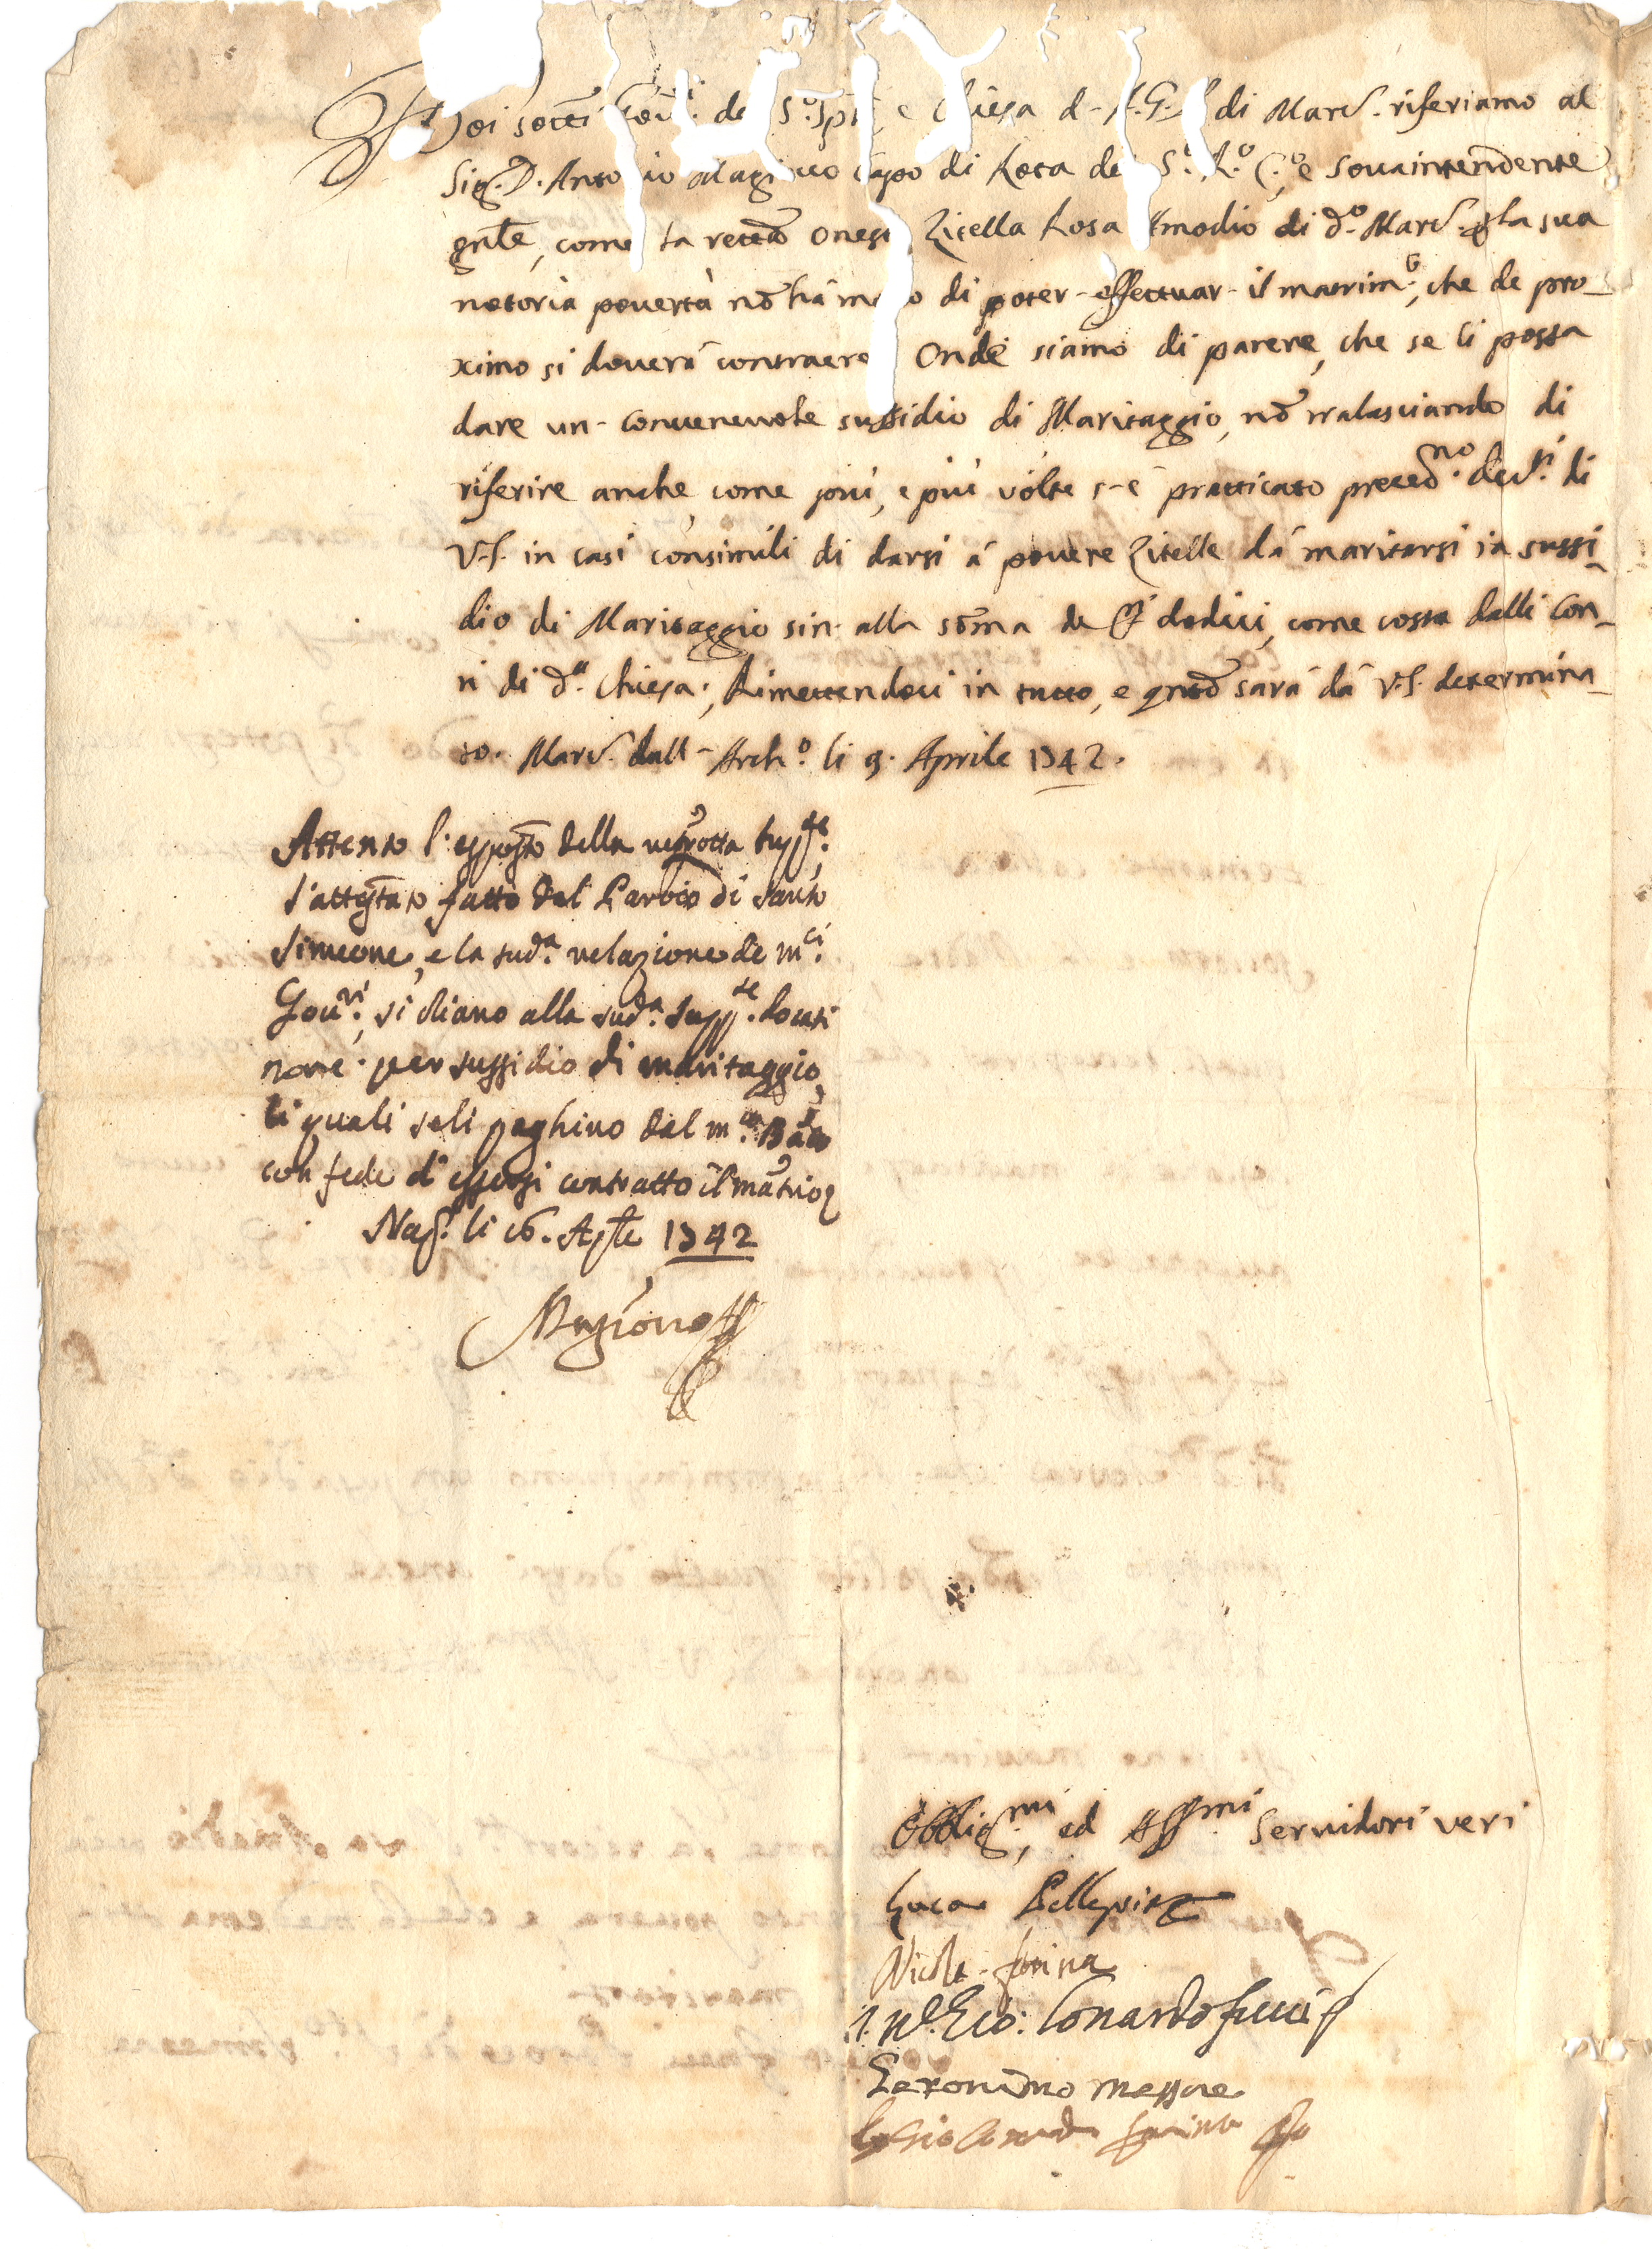 Noi sotti Gov.ri de S.o Spto, e Chiesa d- A.G.P. di Marc. riferiamo al
Sig.r D. Antonio Magiocco Capo di Rota del S.o R.o C.o, e Sovaintendente
gnle, come la rettta onesta Zitella Rosa Amodio di d.o Marc. p la sua
notoria povertà nō hà modo di poter- effettuar- il matrim.o, che de pro-
ximo si doverà contraere. Onde siamo di parere, che se li possa
dare un- convenevole sussidio di Maritaggio, nō tralasciando di
riferire anche, come più, e più volte s-è pratticato preced.no decr.ti di
V.S. in casi consimili di darsi à povere Zitelle dà maritarsi in sussi-
dio di Maritaggio sin- alla sōma de D.ti dodici, come costa dalli Con-
ti di d.a Chiesa; Rimettendoci in tutto, e qnto sarà dà V.S. determina-
to. Marc. dall- Arch.o li 9. Aprile 1742.
Attento l'esposto della retrotta supp.te,
l'attestato fatto dal Paroco di Santo
Simeone, e la sud.a relazione de m.ci
Gov.ri, si diano alla sud.a supp.te docati
nove per sussidio di maritaggio,
li quali se li paghino dal m.co
con fede d'essersi contratto il matrio
Nap. li 16. Aple 1742
Obblig.mi, ed Aff.mi Servidori veri
Luca Pellegrino
Nicola Farina
Lonardo
Geronimo Messore